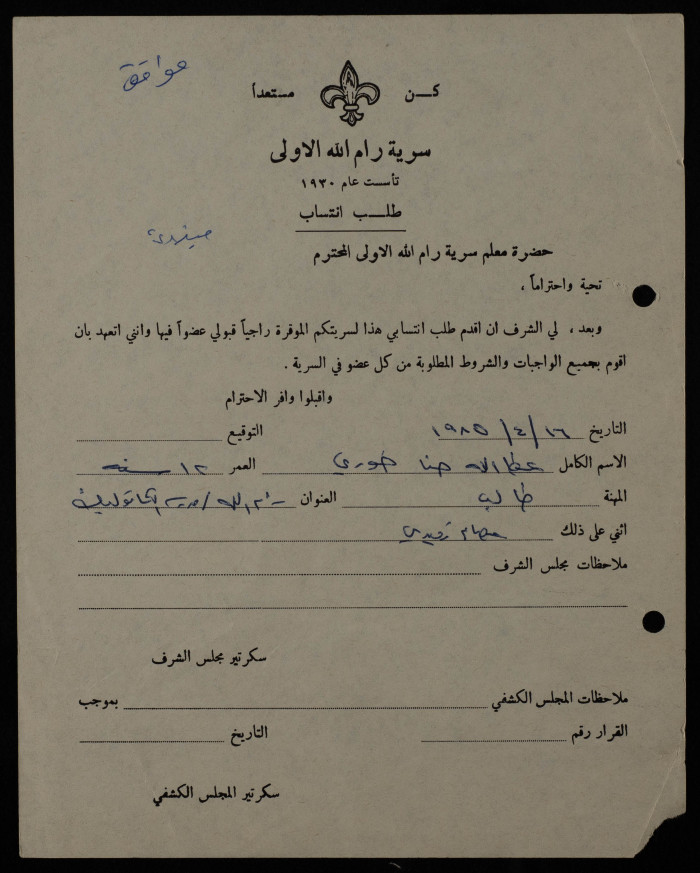 موافق
كــن مستعداً
سرية رام الله الاولى
تأسست عام ١٩٣٠
طلــب انتساب
حضرة معلم سرية رام الله الاولى المحترم
تحية واحتراماً ،
وبعد ، لي الشرف ان اقدم طلب انتسابي هذا لسريتكم الموقرة راجياً قبولي عضواً فيها وانني اتعهد بان
اقوم بجميع الواجبات والشروط المطلوبة من كل عضو في السرية .
واقبلوا وافر الاحترام
التاريخ ١٦/٤/١٩٨٥ التوقيع
الاسم الكامل عطا الله حنا خوري العمر ١٢ سنه
المهنة طالب العنوان رام الله /
اثني على ذلك عصام
ملاحظات مجلس الشرف
سكرتير مجلس الشرف
ملاحظات المجلس الكشفي بموجب
القرار رقم التاريخ
سكرتير المجلس الكشفي